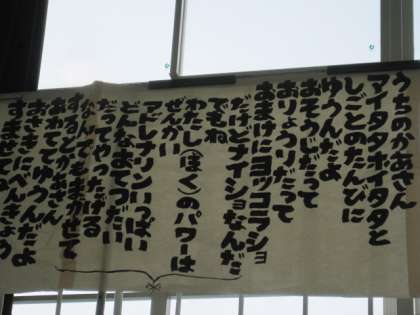 うちのかあさん
アイタタホイタタと
しごとのたんびに
ゆうんだよ
おそうじだって
おりょうりだって
おまけにヨッコラショ
だけどナイショなんだ
でもね
わたし(ぼく)のパワーは
ぜんかい
アドレナリンいっぱい
どんなおてつだい
だってやったげる
なんでもまかせて
するとかあさん
あわててゆうんだよ
おさきにべんきょう
すませてね